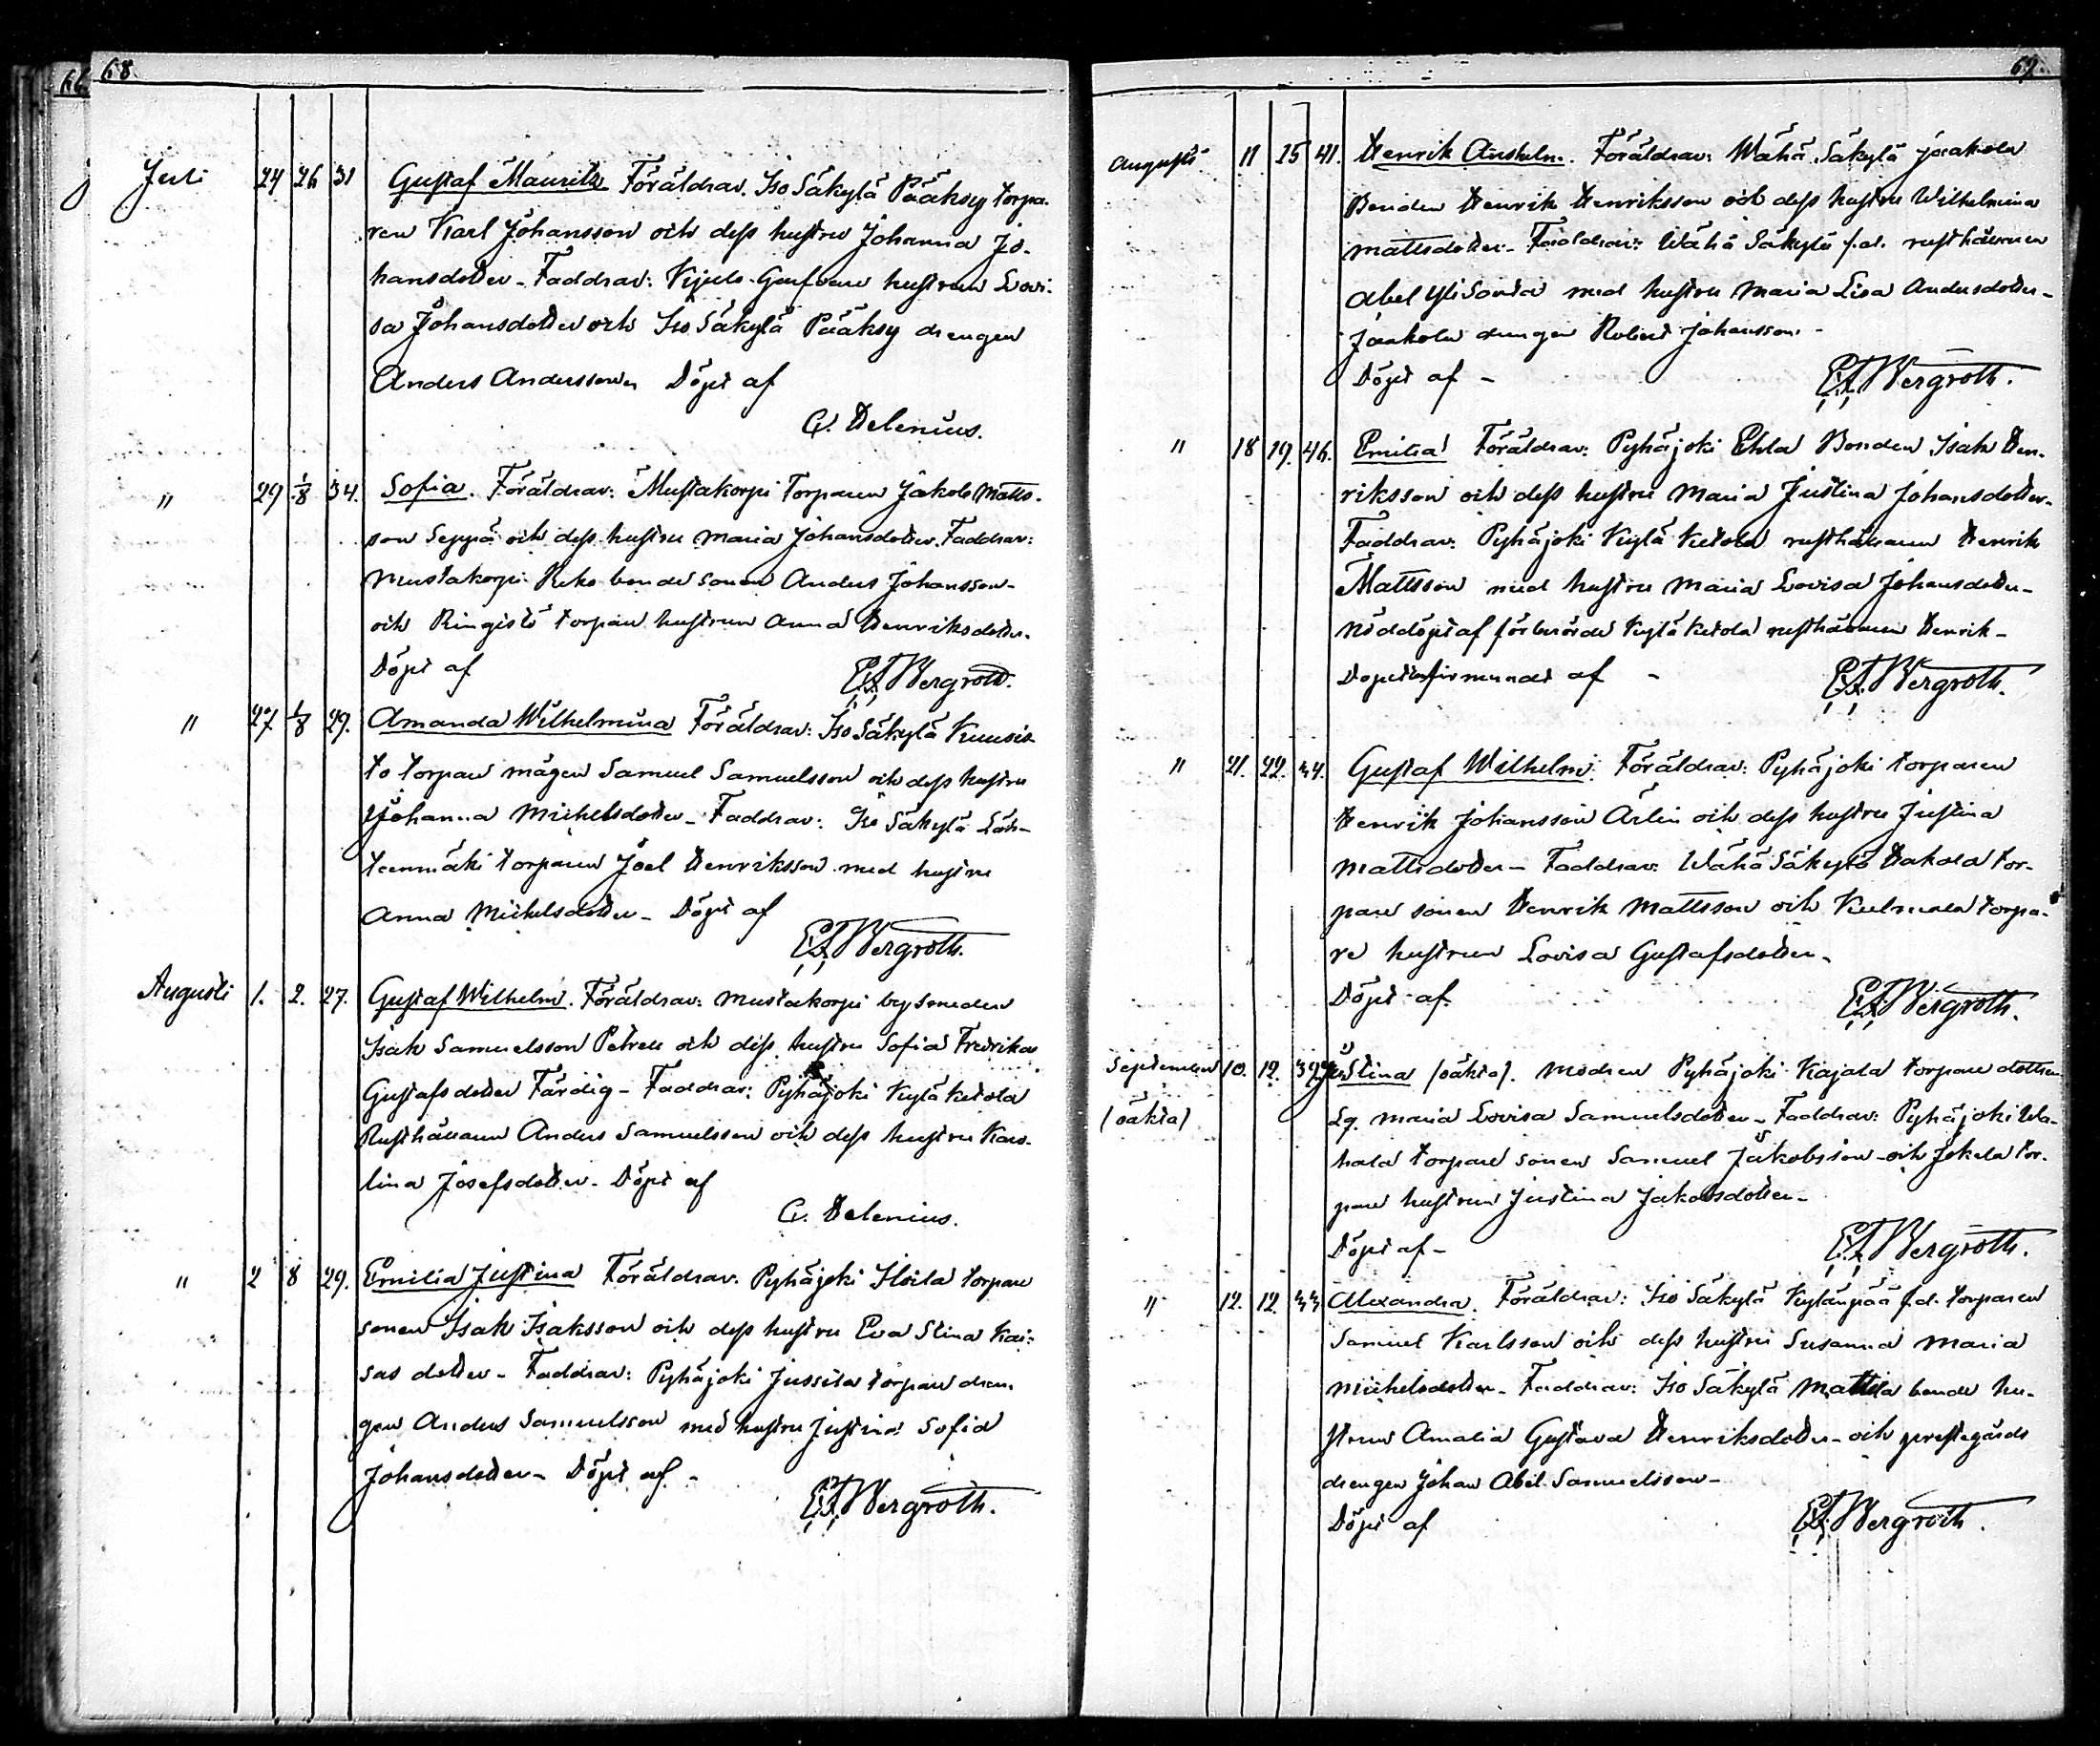 66
68.
Juli 24 26 31 Gustaf Maurits Föräldrar. Iso Säkylä Pääksy torpa-
ren Karl Johansson och dess hustru Johanna Jo-
hansdotter – Faddrar: hustrun Lovi-
sa Johansdotter och Iso Säkylä Pääksy drengen
Anders Andersson Döpt af
C. Helenius.
" 29 1/8 34. Sofia. Föräldrar: Mustakorpi Torparen Jakob Matts-
son Seppä och dess hustru Maria Johansdotter. Faddrar:
Mustakorpi bonde sonen Anders Johansson –
och Ringistö torpare hustrun Anna Henriksdotter.
Döpt af E.F. Bergroth.
" 27 1/8 29. Amanda Wilhelmina Föräldrar: Iso Säkylä Kuusis-
to torpare mågen Samuel Samuelsson och dess hustru
Johanna Michelsdotter – Faddrar: Iso Säkylä Läh-
teenmäki torparen Joel Henriksson med hustru
Anna Michelsdotter – Döpt af
E.F. Bergroth.
Augusti 1. 2. 27. Gustaf Wilhelm. Föräldrar: Mustakorpi bysmeden
Isak Samuelsson Petrell och dess hustru Sofia Fredrika
Gustafsdotter Färdig – Faddrar: Pyhäjoki Kylä Ketola
Rusthållaren Anders Samuelsson och dess hustru Karo-
lina Josefsdotter – Döpt af
C. Helenius.
" 2 8 29. Emilia Justina Föräldrar: Pyhäjoki torpare
sonen Isak Isaksson och dess hustru Eva Stina Kai-
sas dotter – Faddrar: Pyhäjoki Jussila torpare dren-
gen Anders Samuelsson med hustru Justina Sofia
Johansdotter – Döpt af –
E.F. Bergroth.
69.
Augusti 11 15 41. Henrik Anshelm. Föräldrar: Wähä Säkylä Jaakola
Bonden Henrik Henriksson och dess hustru Wilhelmina
Mattsdotter – Faddrar: Wähä Säkylä f.d. rusthållaren
Abel Yli Sonta med hustru Maria Lisa Andersdotter –
Jaakola drengen Robert Johansson –
Döpt af – E.F. Bergroth.
" 18 19. 46. Emilia Föräldrar: Pyhäjoki Ehla Bonden Isak Hen-
riksson och dess hustru Maria Justina Johansdotter –
Faddrar: Pyhäjoki Kylä Ketola rusthållaren Henrik
Mattsson med hustru Maria Lovisa Johansdotter –
Nöddöpt af förberörde Kylä Ketola rusthållaren Henrik –
af – E.F. Bergroth.
" 21. 22. 34. Gustaf Wilhelm. Föräldrar: Pyhäjoki torparen
Henrik Johansson Arlin och dess hustru Justina
Mattsdotter – Faddrar: Wähä Säkylä Hakala tor-
pare sonen Henrik Mattsson och Kulmala torpa-
re hustrun Lovisa Gustafsdotter –
Döpt af. E.F. Bergroth.
September 10. 12. Justina (oäkta). Modren Pyhäjoki Kajala torpare dottren
(oäkta) Lg. Maria Lovisa Samuelsdotter – Faddrar: Pyhäjoki Wa-
hala torpare sonen Samuel Jakobsson – och Jokela tor-
pare hustrun Justina Jakobsdotter –
Döpt af – E.F. Bergroth.
" 12. 12 33 Alexandra. Föräldrar: Iso Säkylä Kylänpää f.d. torparen
Samuel Karlsson och dess hustru Susanna Maria
Michelsdotter – Faddrar: Iso Säkylä Mattila bonde hu-
strun Amalia Gustava Henriksdotter – och prestegårds
drengen Johan Abel Samuelsson –
Döpt af E.F. Bergroth.